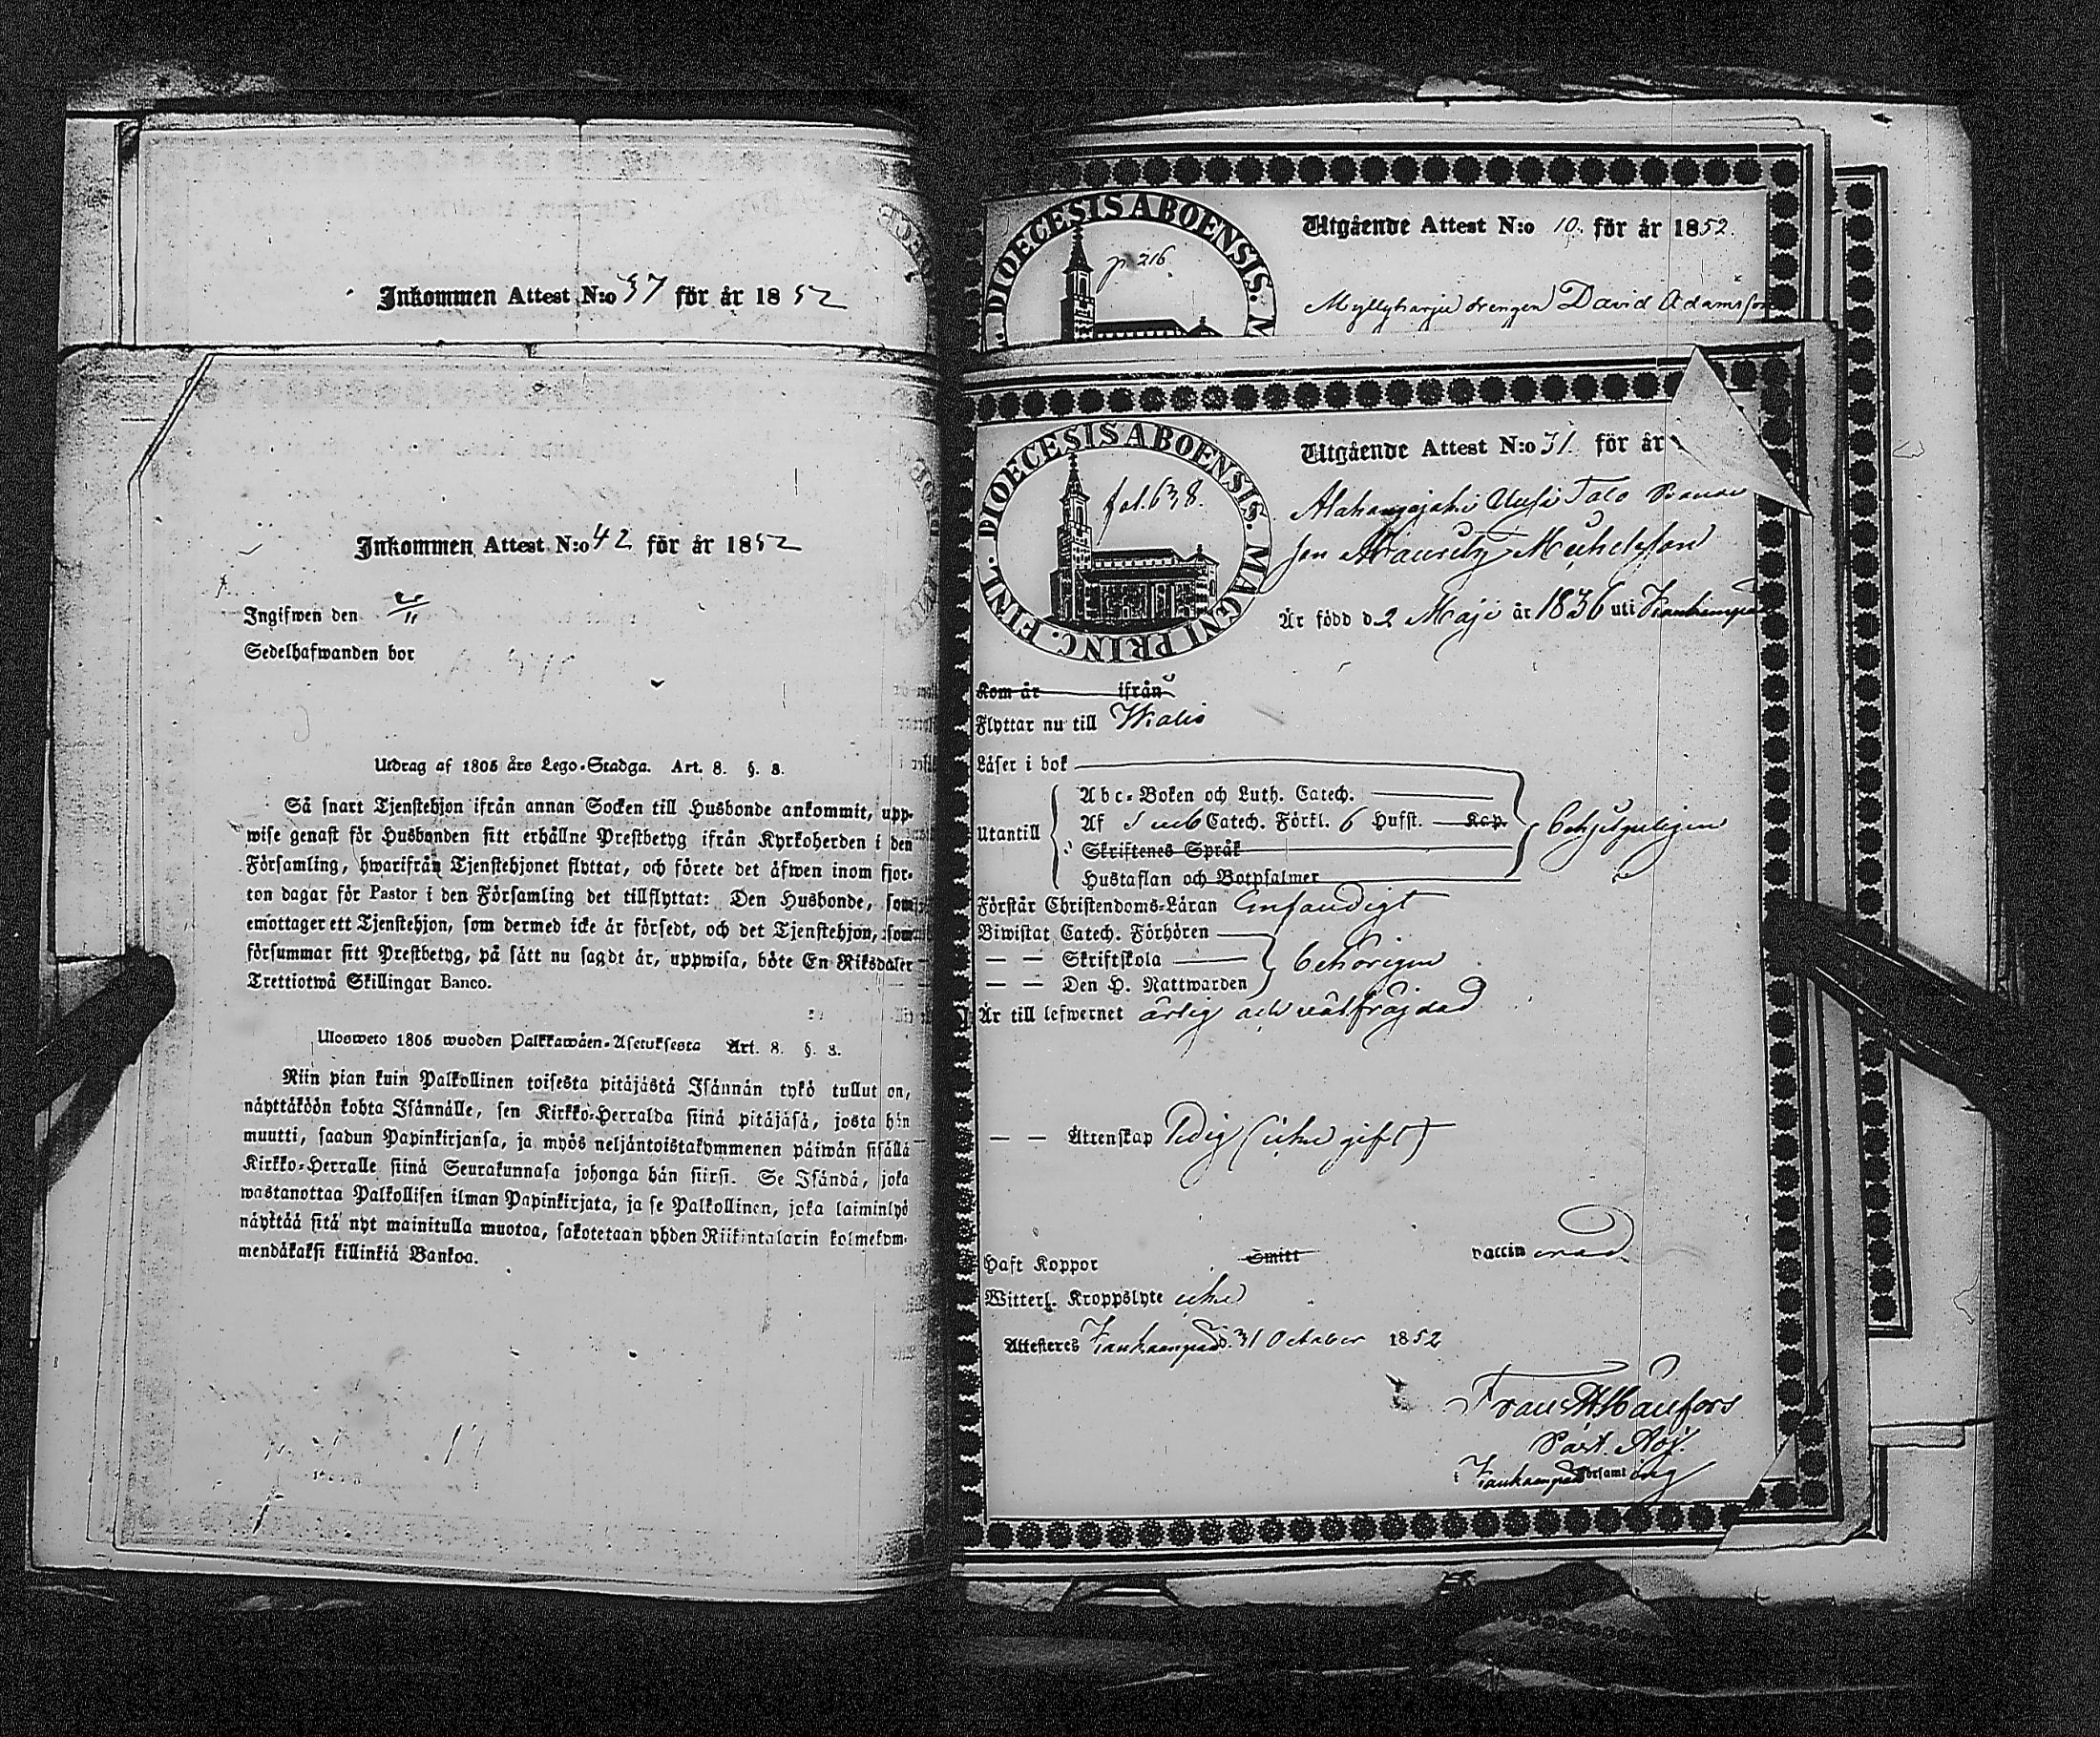 Inkommen Attest N:o 37 för år 1852
Inkommen Attest N:o 42 för år 1852
Ingifwen den
Sedelhafwanden bor
Utdrag af 1805 års Lego-Stadga. Art. 8. §. 3.
Så snart Tjenstehjon ifrån annan Socken till Husbonde ankommit, upp-
wise genast för Husbonden sitt erhållne Prestbetyg ifrån Kyrkoherden i den
Församling, hwarifrån Tjenstehjonet flyttat, och förete det äfwen inom fjor-
ton dagar för Pastor i den Församling det tillflyttat: Den Husbonde, som
emottager ett Tjenstehjon, som dermed icke är försedt, och det Tjenstehjon, som
försummar sitt Prestbetyg, på sätt nu sagdt är, uppwisa, böte En Riksdaler
Trettiotwå Skillingar Banco.
Uloswето 1805 wuoden Palkkawäen-Asetuksesta Art. 8. §. 3.
Niin pian kuin Palkollinen toisesta pitäjästä Isännän tykö tullut on,
näyttäköön kohta Isännälle, sen Kirkko-Herralda siinä pitäjäsä, josta hän
muutti, saadun Papinkirjansa, ja myös neljäntoistakymmenen päiwän sisällä
Kirkko-Herralle siinä Seurakunnasa johonga hän siirsi. Se Isändä, joka
wastanottaa Palkollisen ilman Papinkirjata, ja se Palkollinen, joka laiminlyö
näyttää sitä nyt mainitulla muotoa, sakotetaan yhden Riikintalarin kolmekym-
mendäkaksi killinkiä Bankoa.
DIOECESIS ABOENSIS. M
p 216
Utgående Attest N:o 10. för år 1852.
Myllyharju drengen David Adamsson
FINL. DIOECESIS ABOENSIS. MAGNI PRINC.
fol. 638.
Utgående Attest N:o 31. för år
Talo
son Mauritz
Är född d 2 Maji år 1836 uti Kankaanpää
Kom år ifrån
Flyttar nu till
Läser i bok
Utantill
Abc-Boken och Luth. Catech.
Af Catech. Förkl. 6 Hufst. Kap.
Skriftenes Språk
Hustaflan och Botpsalmer
Förstår Christendoms-Läran enfaldigt
Biwistat Catech. Förhören
— — Skriftskola
— — Den H. Nattwarden
behörigen
Är till lefwernet ärlig och wälfrägdad
— — Ägtenskap ledig (icke gift)
Haft Koppor
Smitt
vaccinerad
Witterl. Kroppslyte icke
Attesteras Kankaanpää d. 31 October 1852
Past. Adj.
Kankaanpää Församling